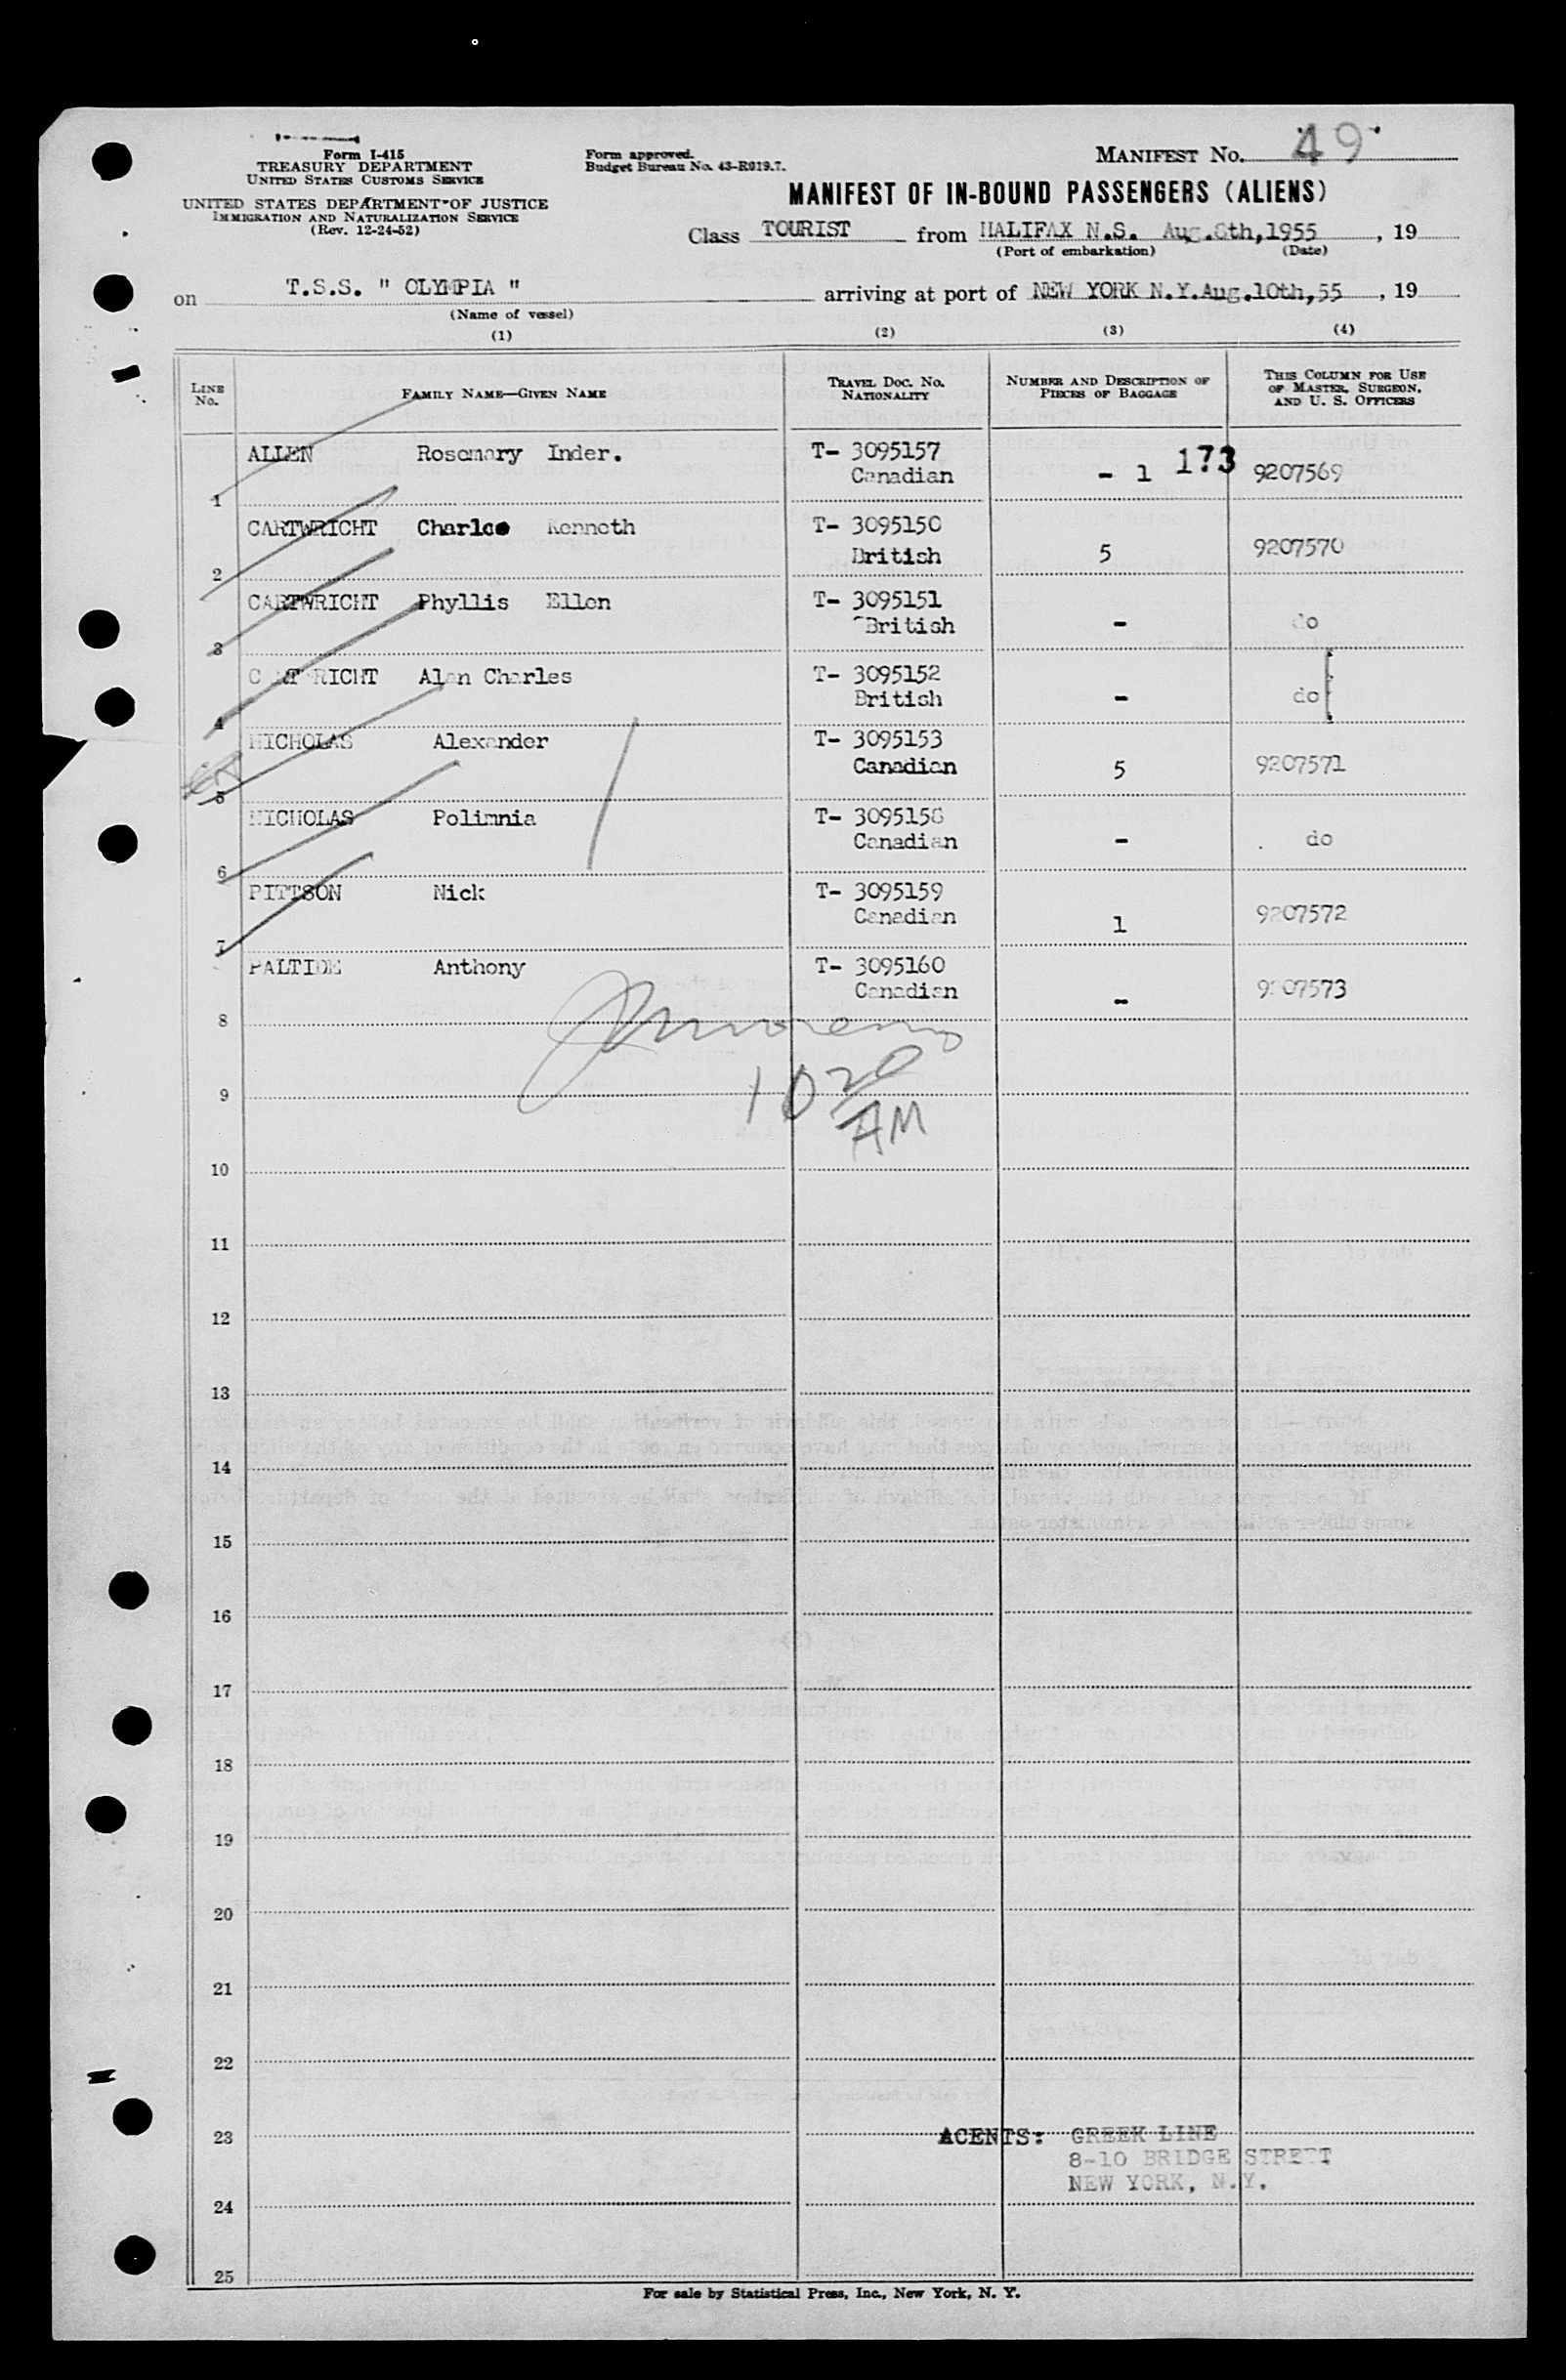 Form I-415
TREASURY DEPARTMENT
UNITED STATES CUSTOMS SERVICE
UNITED STATES DEPARTMENT OF JUSTICE
IMMIGRATION AND NATURALIZATION SERVICE
(Rev. 12-24-52)
Form approved.
Budget Bureau No. 43-R019.7.
MANIFEST No. 49
MANIFEST OF IN-BOUND PASSENGERS (ALIENS)
Class TOURIST from HALIFAX N.S. Aug.8th,1955, 19
(Port of embarkation) (Date)
on T.S.S. " OLYMPIA " arriving at port of NEW YORK N.Y.Aug.10th,55, 19
(Name of vessel)
(1) (2) (3) (4)
LINE No. FAMILY NAME—GIVEN NAME TRAVEL DOC. NO. NATIONALITY NUMBER AND DESCRIPTION OF PIECES OF BAGGAGE THIS COLUMN FOR USE OF MASTER, SURGEON, AND U. S. OFFICERS
ALLEN Rosemary Inder. T- 3095157
1 Canadian - 1 173 9207569
CARTWRICHT Charles Kenneth T- 3095150
2 British 5 9207570
CARTWRICHT Phyllis Ellen T- 3095151
3 British - do
CARTWRICHT Alan Charles T- 3095152
4 British - do
NICHOLAS Alexander T- 3095153
5 Canadian 5 9207571
NICHOLAS Polimnia T- 3095158
6 Canadian - do
PITTSON Nick T- 3095159
7 Canadian 1 9207572
PALTIDE Anthony T- 3095160
8 Canadian - 9207573
9 10 20 AM
10
11
12
13
14
15
16
17
18
19
20
21
22
23 ACENTS: GREEK LINE
8-10 BRIDGE STREET
NEW YORK, N.Y.
24
25
For sale by Statistical Press, Inc., New York, N. Y.